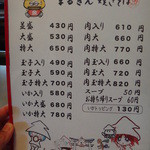 まるさん 焼きそば
並盛 430円
大盛 530円
特大 650円
玉子入り 490円
玉子大 590円
玉子特大 700円
いか入り 580円
いか大盛 680円
いか特大 780円
肉入り 610円
肉大 660円
肉特大 770円
肉玉入り 660円
肉玉大 720円
肉玉特大 820円
スープ 50円
お持ち帰りスープ 60円
130円